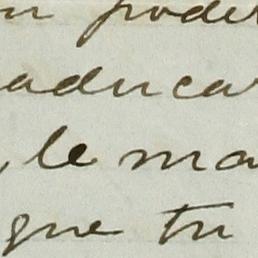 n poder
aduca
, le ma
que tu